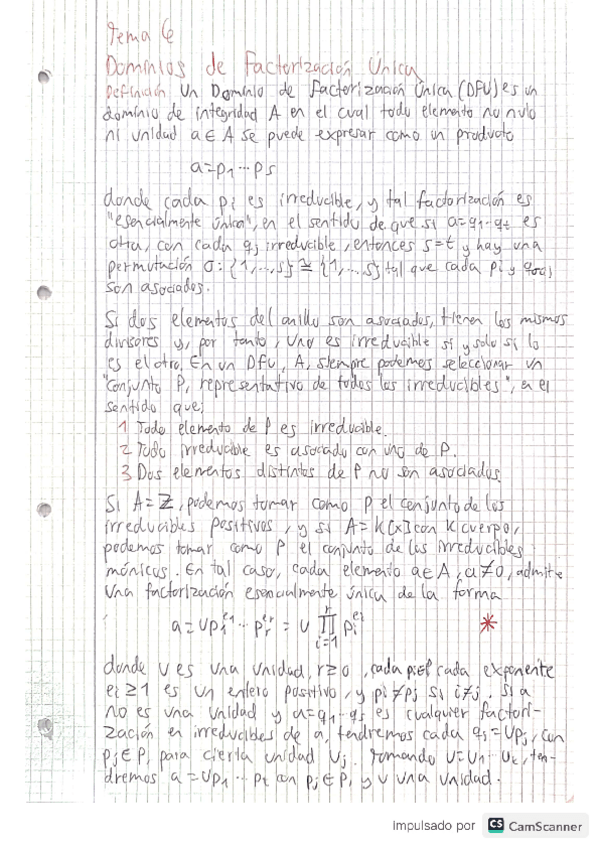 Tema 6
Dominios de Factorización Única
Definición Un Dominio de Factorización Única (DFU) es un
dominio de integridad A en el cual todo elemento no nulo
ni unidad a∈A se puede expresar como un producto
a=p₁···pₛ
donde cada pᵢ es irreducible, y tal factorización es
"esencialmente única", en el sentido de que si a=q₁···qₜ es
otra, con cada qⱼ irreducible, entonces s=t y hay una
permutación σ: {1,...,s} ≅ {1,...,s} tal que cada pᵢ y q_σ(i)
son asociados.
Si dos elementos del anillo son asociados, tienen los mismos
divisores y, por tanto, uno es irreducible si y solo si lo
es el otro. En un DFU, A, siempre podemos seleccionar un
"conjunto P, representativo de todos los irreducibles", en el
sentido que:
1 Todo elemento de P es irreducible.
2 Todo irreducible es asociado con uno de P.
3 Dos elementos distintos de P no son asociados.
Si A=ℤ, podemos tomar como P el conjunto de los
irreducibles positivos, y si A=K[x] con K cuerpo,
podemos tomar como P el conjunto de los irreducibles
mónicos. En tal caso, cada elemento a∈A, a≠0, admite
una factorización esencialmente única de la forma
a=up₁^e₁···pᵣ^eᵣ = u ∏ᵢ₌₁ʳ pᵢ^eᵢ *
donde u es una unidad, r≥0, cada pᵢ∈P cada exponente
eᵢ≥1 es un entero positivo, y pᵢ≠pⱼ si i≠j. Si a
no es una unidad y a=q₁···qₛ es cualquier factori-
zación en irreducibles de a, tendremos cada qⱼ=upⱼ, con
pⱼ∈P, para cierta unidad uⱼ. Tomando u=u₁···uₜ, ten-
dremos a=up₁···pₜ con pⱼ∈P, y u una unidad.
Impulsado por CS CamScanner